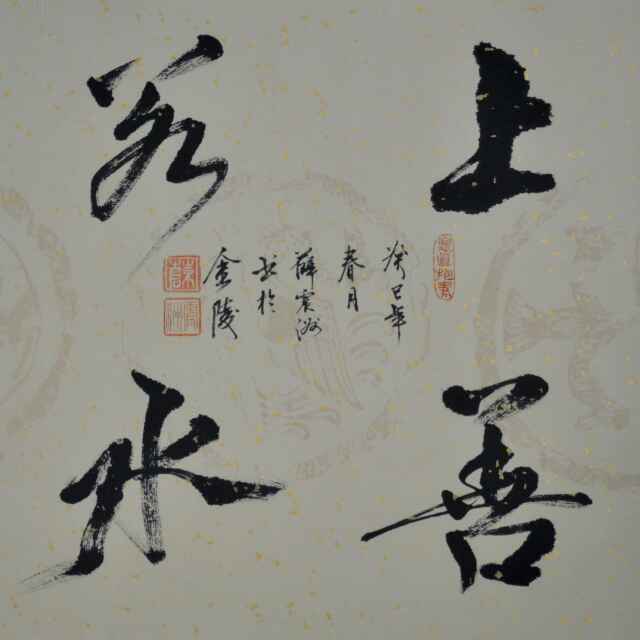 上善
若水
癸巳年
春月
薛
书于
金陵